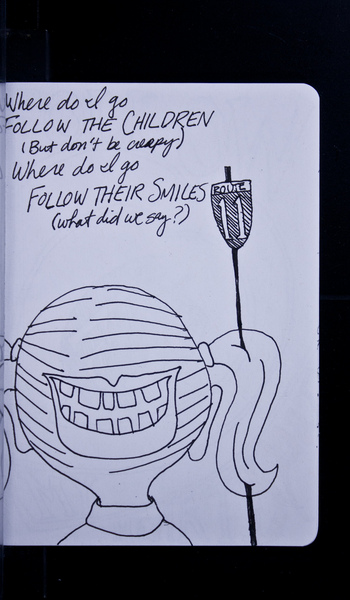 Where do I go
FOLLOW THE CHILDREN
(But don't be creepy)
Where do I go
FOLLOW THEIR SMILES
(what did we say?)
ROUTE
11